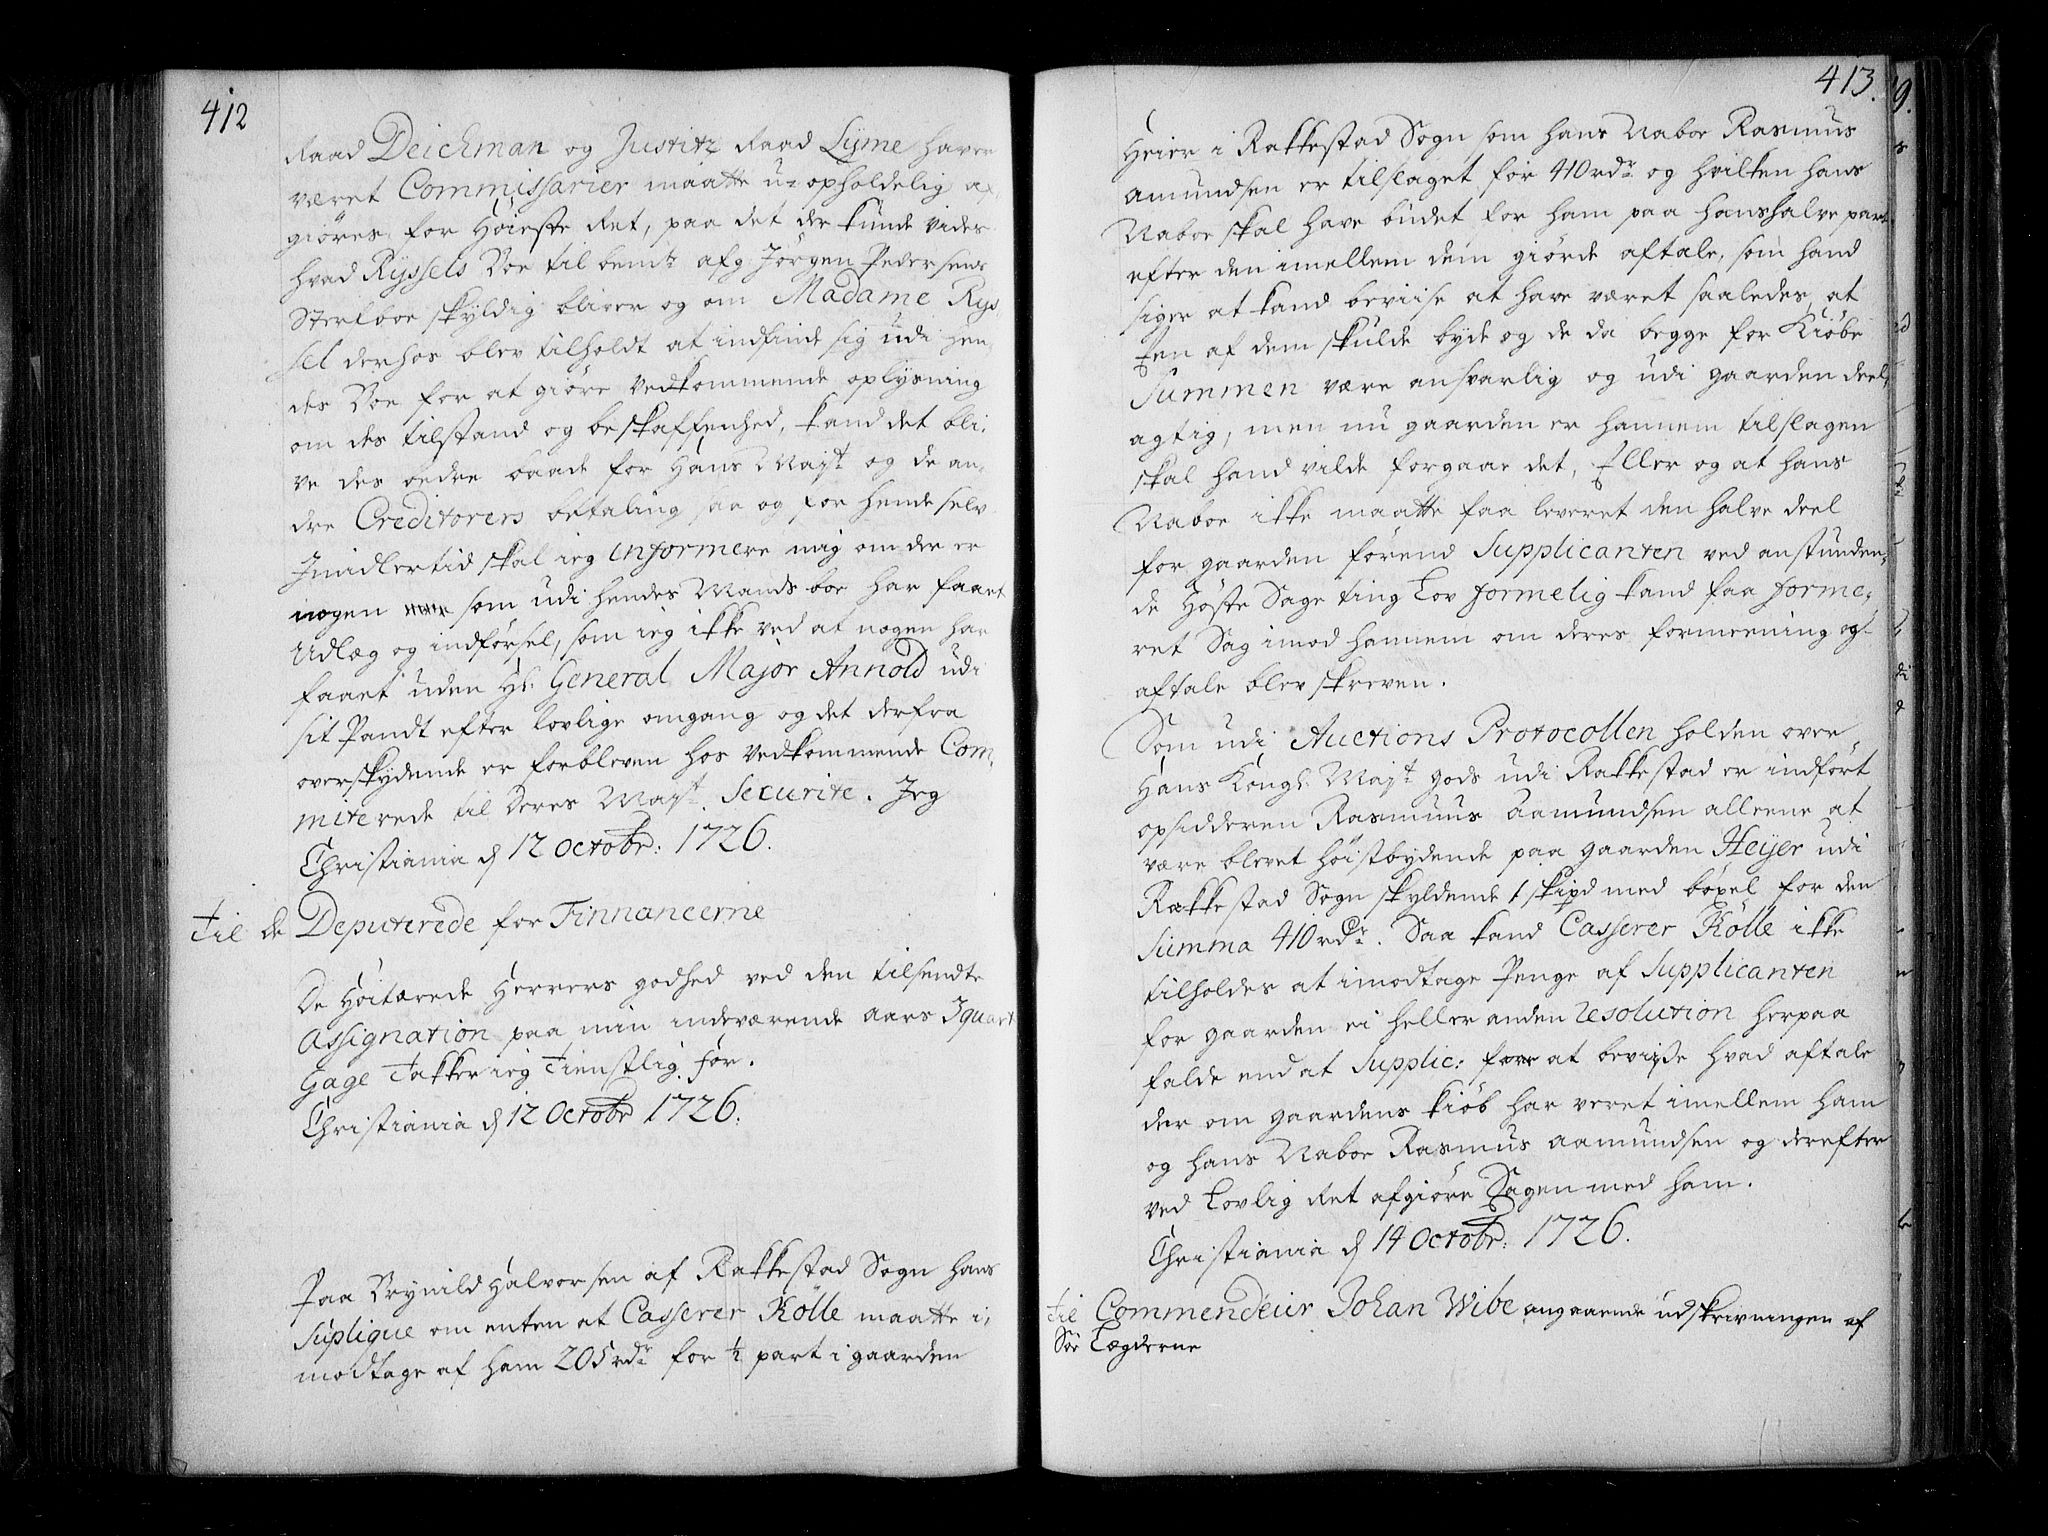 412
Raad Deichman og Justitz Raad Lyme haver
været Commissarier maatte u-opholdelig af,
giøres for Høieste Ret, paa det der kunde vides
hvad Ryssels Boe til bemte afg: Jørgen Pedersens
Sterfboe skyldig bliver og om Madame Rys,
sel derhos blev tilholdt at indfinde sig udi hen,
des Boe for at giøre Vedkommende oplysning
om des tilstand og beskaffenhed, kand det bli,
ve des bedre baade for Hans Mayt og de an,
dre Creditorers betaling saa og for hende selv
Jmidlertid skal ieg informere mig om der er
nogen som udi hendes Mands boe har faaet
Udlæg og indførsel, som ieg ikke ved at nogen har
faaet uden Hr. General Major Arnold udi
sit Pandt efter lovlige omgang og det derfra
overskydende er forbleven hos Vedkommende Com,
miterede til Deres Mayt. Securite. Jeg
Christiania d 12 Octobr: 1726.
Til de Deputerede for Finnancerne
De Høitærede Herrers godhed ved den tilsendte
Assignation paa min indeværende aars 3 quart
Gage Takker ieg Tienstlig for.
Christiania d 12 Octobr 1726.
Paa Brynild Halvorsen af Rakkestad Sogn hans
Suplique om enten at Casserer Kølle maatte i,
modtage af ham 205 rdr for ½ part i gaarden
413.
Heier i Rakkestad Sogn som hans Naboe Rasmus
Amundsen er tilslaget for 410 rdr og hvilken hans
Naboe skal have budet for ham paa hans halve part
efter den imellem dem giørde aftale, som hand
siger at kand beviise at have været saaledes, at
Een af dem skulde byde og de da begge for Kiøbe
Summen være ansvarlig og udi gaarden deel,
agtig, men nu gaarden er hannem tilslagen
skal hand vilde forgaae det, Eller og at hans
Naboe ikke maatte faa leveret den halve deel
for gaarden førend Supplicanten ved anstunden,
de Høste Sage ting Lov formelig kand faa forme,
ret Sag imod hannem om deres formeening og
aftale blev skreven.
Som udi Auctions Protocollen holden over
Hans Kongl. Mayt gods udi Rakkestad er indført
opsidderen Rasmuus Aamundsen alleene at
være blevet høistbydende paa gaarden Heyer udi
Rakkestad Sogn skyldende 1 skipd med bøxel for den
Summa 410 rdr. Saa kand Casserer Kølle ikke
tilholdes at imodtage Penge af Supplicanten
for gaarden ei heller anden Resolution herpaa
falde end at Supplic: at beviise hvad aftale
der om gaardens kiøb har veret imellem ham
og hans Naboe Rasmus Aamundsen og derefter
ved Lovlig Ret afgiøre Sagen med ham.
Christiania d 14 Octobr: 1726.
Til Commendeur Johan Wibe angaaende udskrivningen af
Søe Lægderne